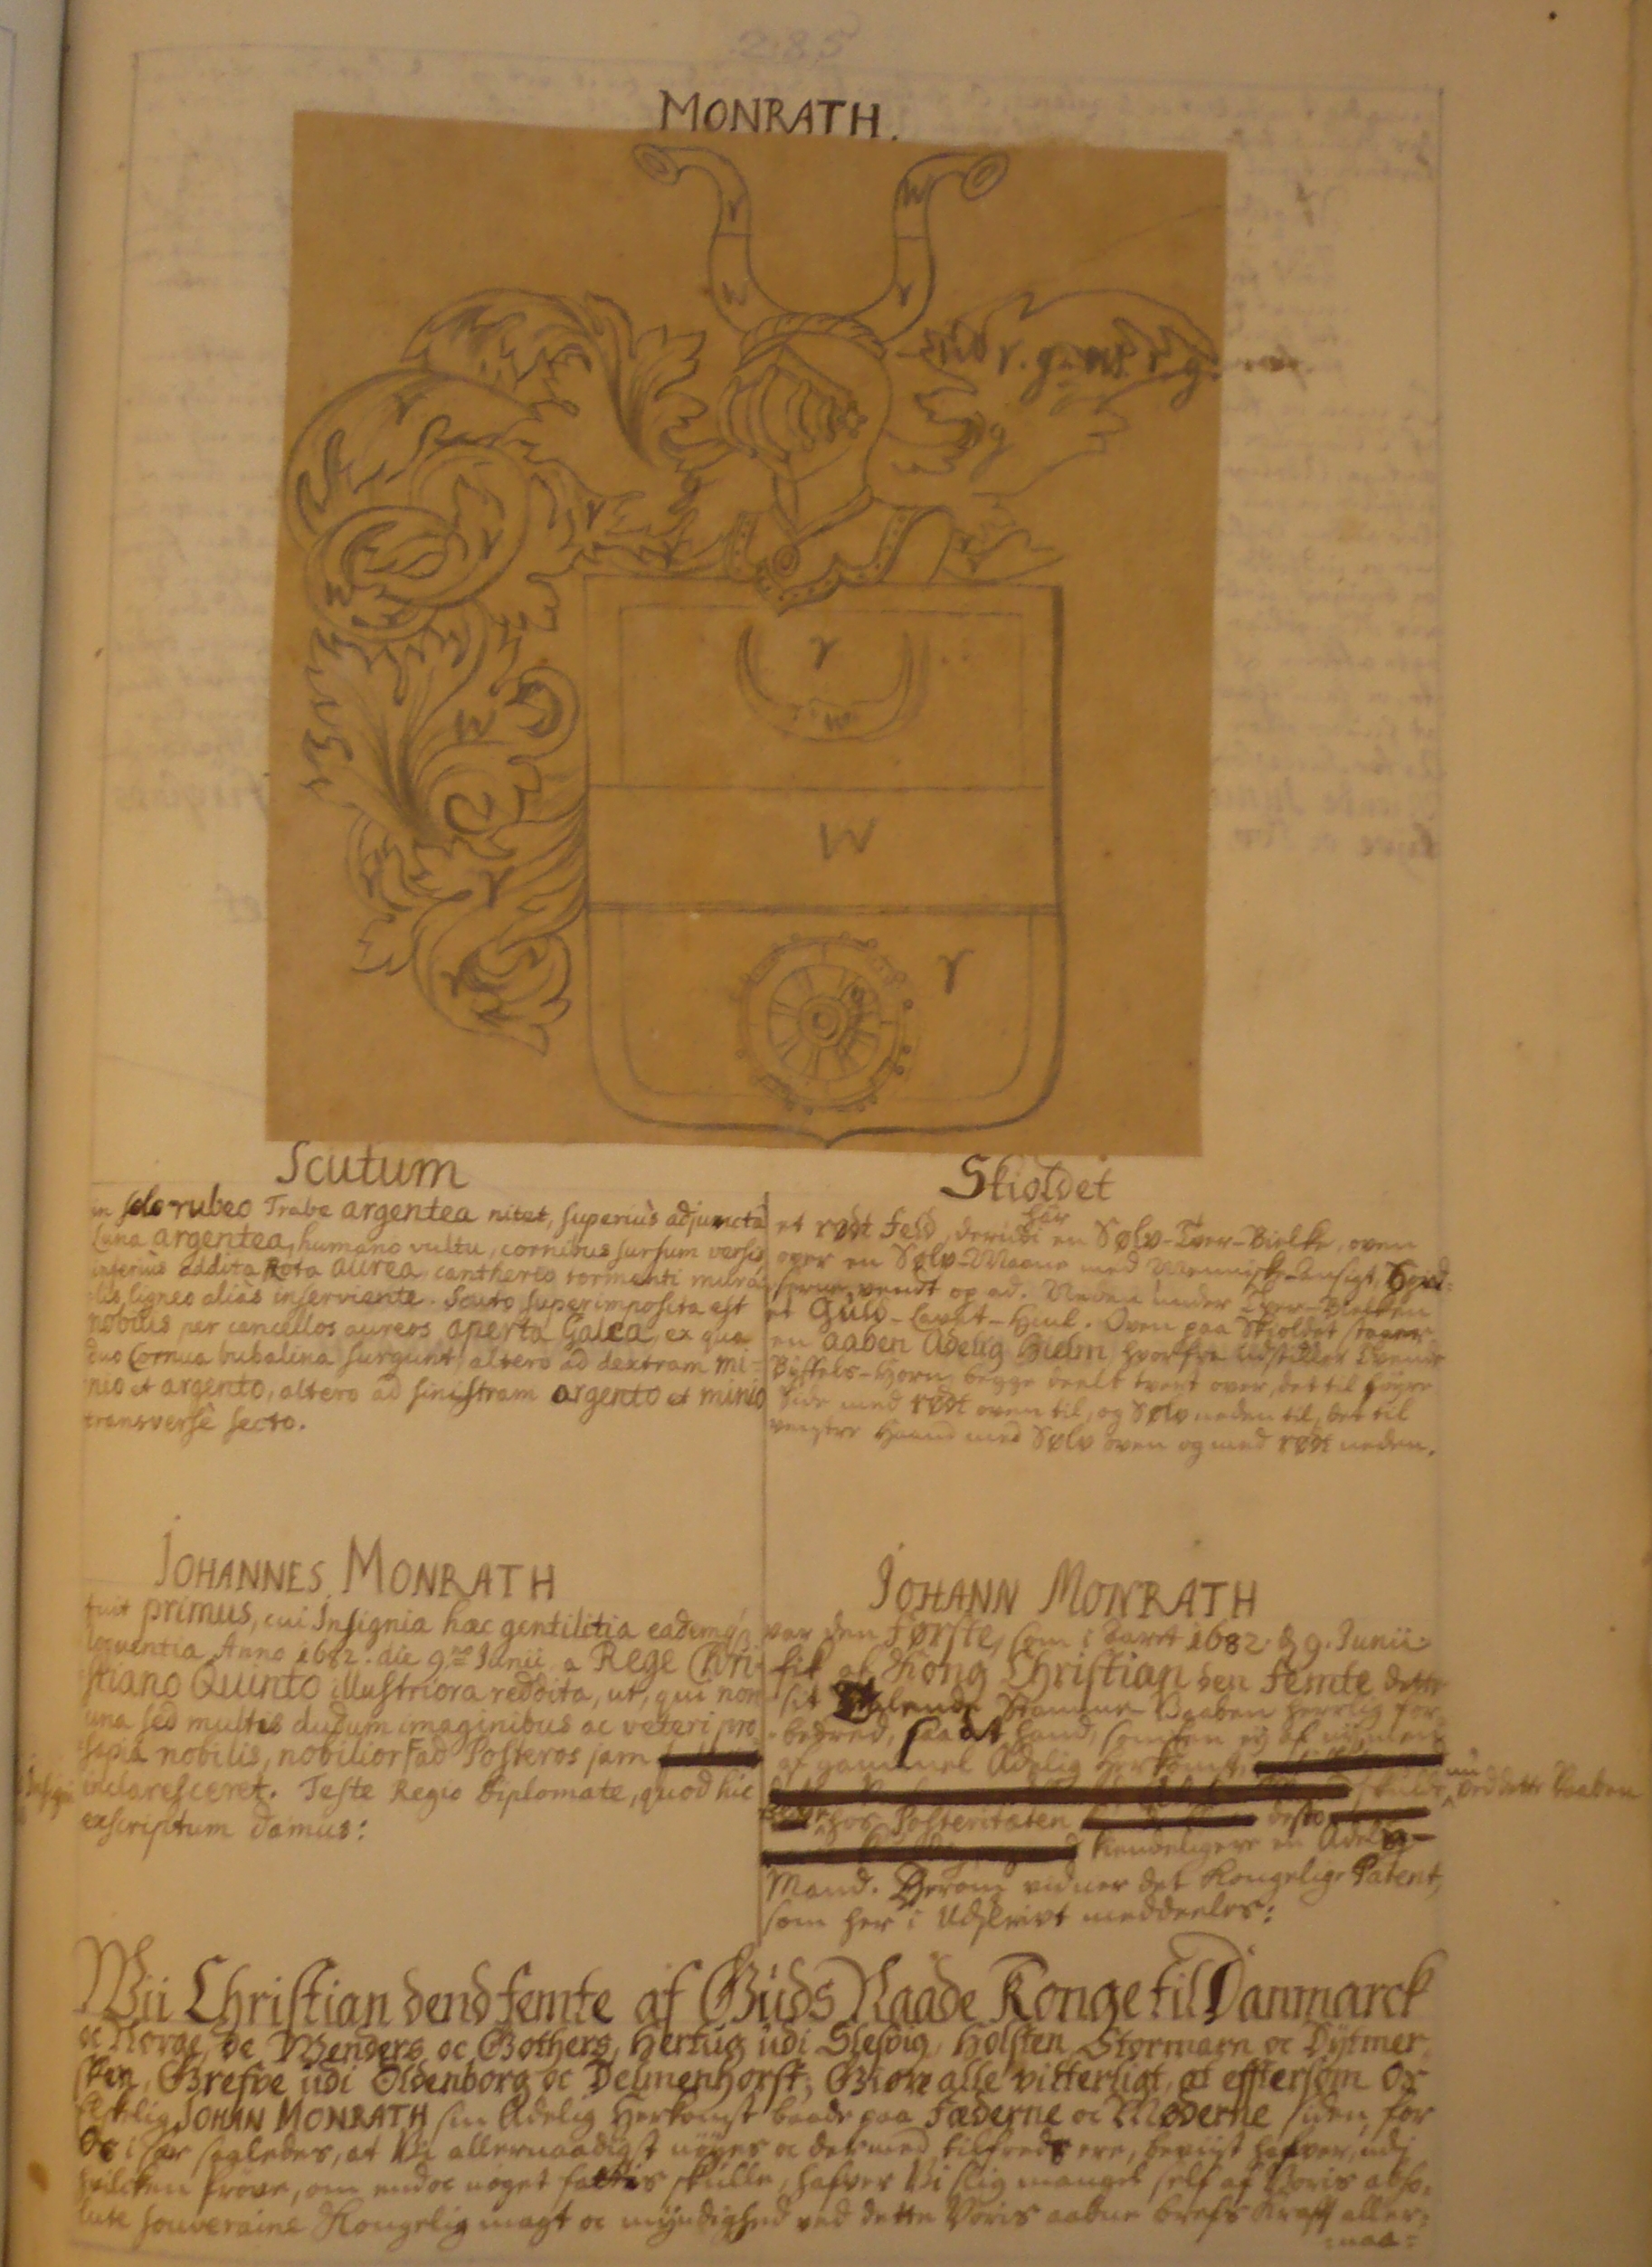 285
MONRATH.
r
W
W
r
r
r
W
W
r
W
r
r
Scutum
in solo rubeo Trabe argentea nitet, superiùs adjuncta
Luna argentea, humano vultu, cornibus sursum versis
inferius addita Rota aurea cantherio tormenti mura-
lis ligneo aliàs inserviente. Scuto superimposita est
nobilis per cancellos aureos aperta Galea, ex qua
duo Cornua bubalina surgunt altero ad dextram mi-
nio et argento, altero ad sinistram argento et minio
transversè secto.
Skioldet
et rødt feld, derudi en Sølv-Tver-Bielke, oven
over en Sølv-Maane med Menniske-Ansigt, Horn-
vendt op ad. Neden under Tver-Bielken
et Guld-Lavet-Hiul. Oven paa Skioldet staaer
en aaben Adelig Hielm, hvorfra udstiller Tvende
Byffels-Horn, begge deelt tvert over, det til høyre
Side med rødt oven til, og Sølv neden til, det til
venstre Haand med Sølv oven og med rødt neden.
JOHANNES MONRATH
fuit primus, cui Insignia hæc gentilitia eademq
Anno 1682. die 9.no Junii a Rege Chri-
stiano Quinto illustriora reddita, ut, qui non
una sed multis dudum imaginibus ac veteri pro-
sapia nobilis, nobilior ad Posteros jam
inclaresceret. Teste Regio Diplomate, quod hic
exscriptum damus:
JOHANN MONRATH
var den Første, som i Aaret 1682. d. 9. Junii
fik af Kong Christian den Femte dette
sit Stamme-Vaaben herrlig for-
bedred, saa at hand, som ey af
af gammel Adelig Herkomst,
skulde nu ved dette Vaaben
hos Posteriteten desto
kiendeligere en Adels-
Mand. Herom vidner det Kongelige Patent,
som her i Udskrivt meddeeles:
Wii Christian dend femte af Guds Naade Konge til Danmarck
oc Norge, de Wenders oc Gothers, Hertug udi Slesvig, Holsten, Stormarn oc Dytmer-
sken, Grefve udi Oldenborg oc Delmenhorst, Giøre alle vitterligt, at efftersom Os
JOHAN MONRATH sin Adelig Herkomst baade paa Fæderne oc Møderne siden, for
Os i sær saaledes, at Vi allernaadigst nøyes oc dermed tilfreds ere, beviist hafver, udj
hvilcken prøve, om endoc noget fattis skulle, hafver Vi slig mangel self af Voris abso-
lute souveraine Kongelig magt oc myndighed ved dette Voris aabne brefs Krafft aller-
naa-